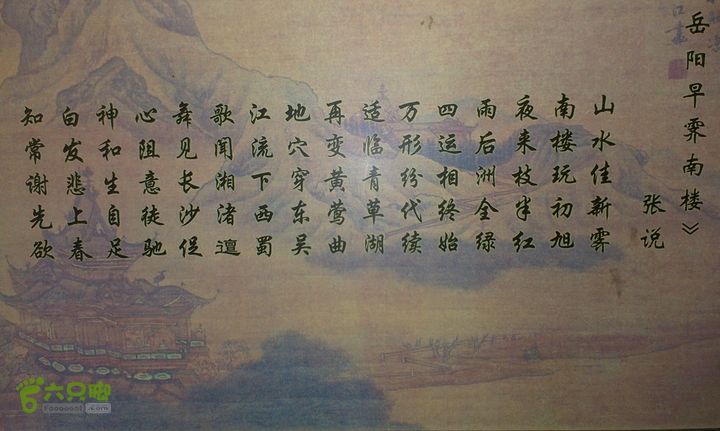 岳阳早霁南楼》
张说
山水佳新霁
南楼玩初旭
夜来枝半红
雨后洲全绿
四运相终始
万形纷代续
适临青草湖
再变黄莺曲
地穴穿东吴
江流下西蜀
歌闻湘渚邅
舞见长沙促
心阻意徒驰
神和生自足
白发悲上春
知常谢先欲
六只脚
Foooooot .com